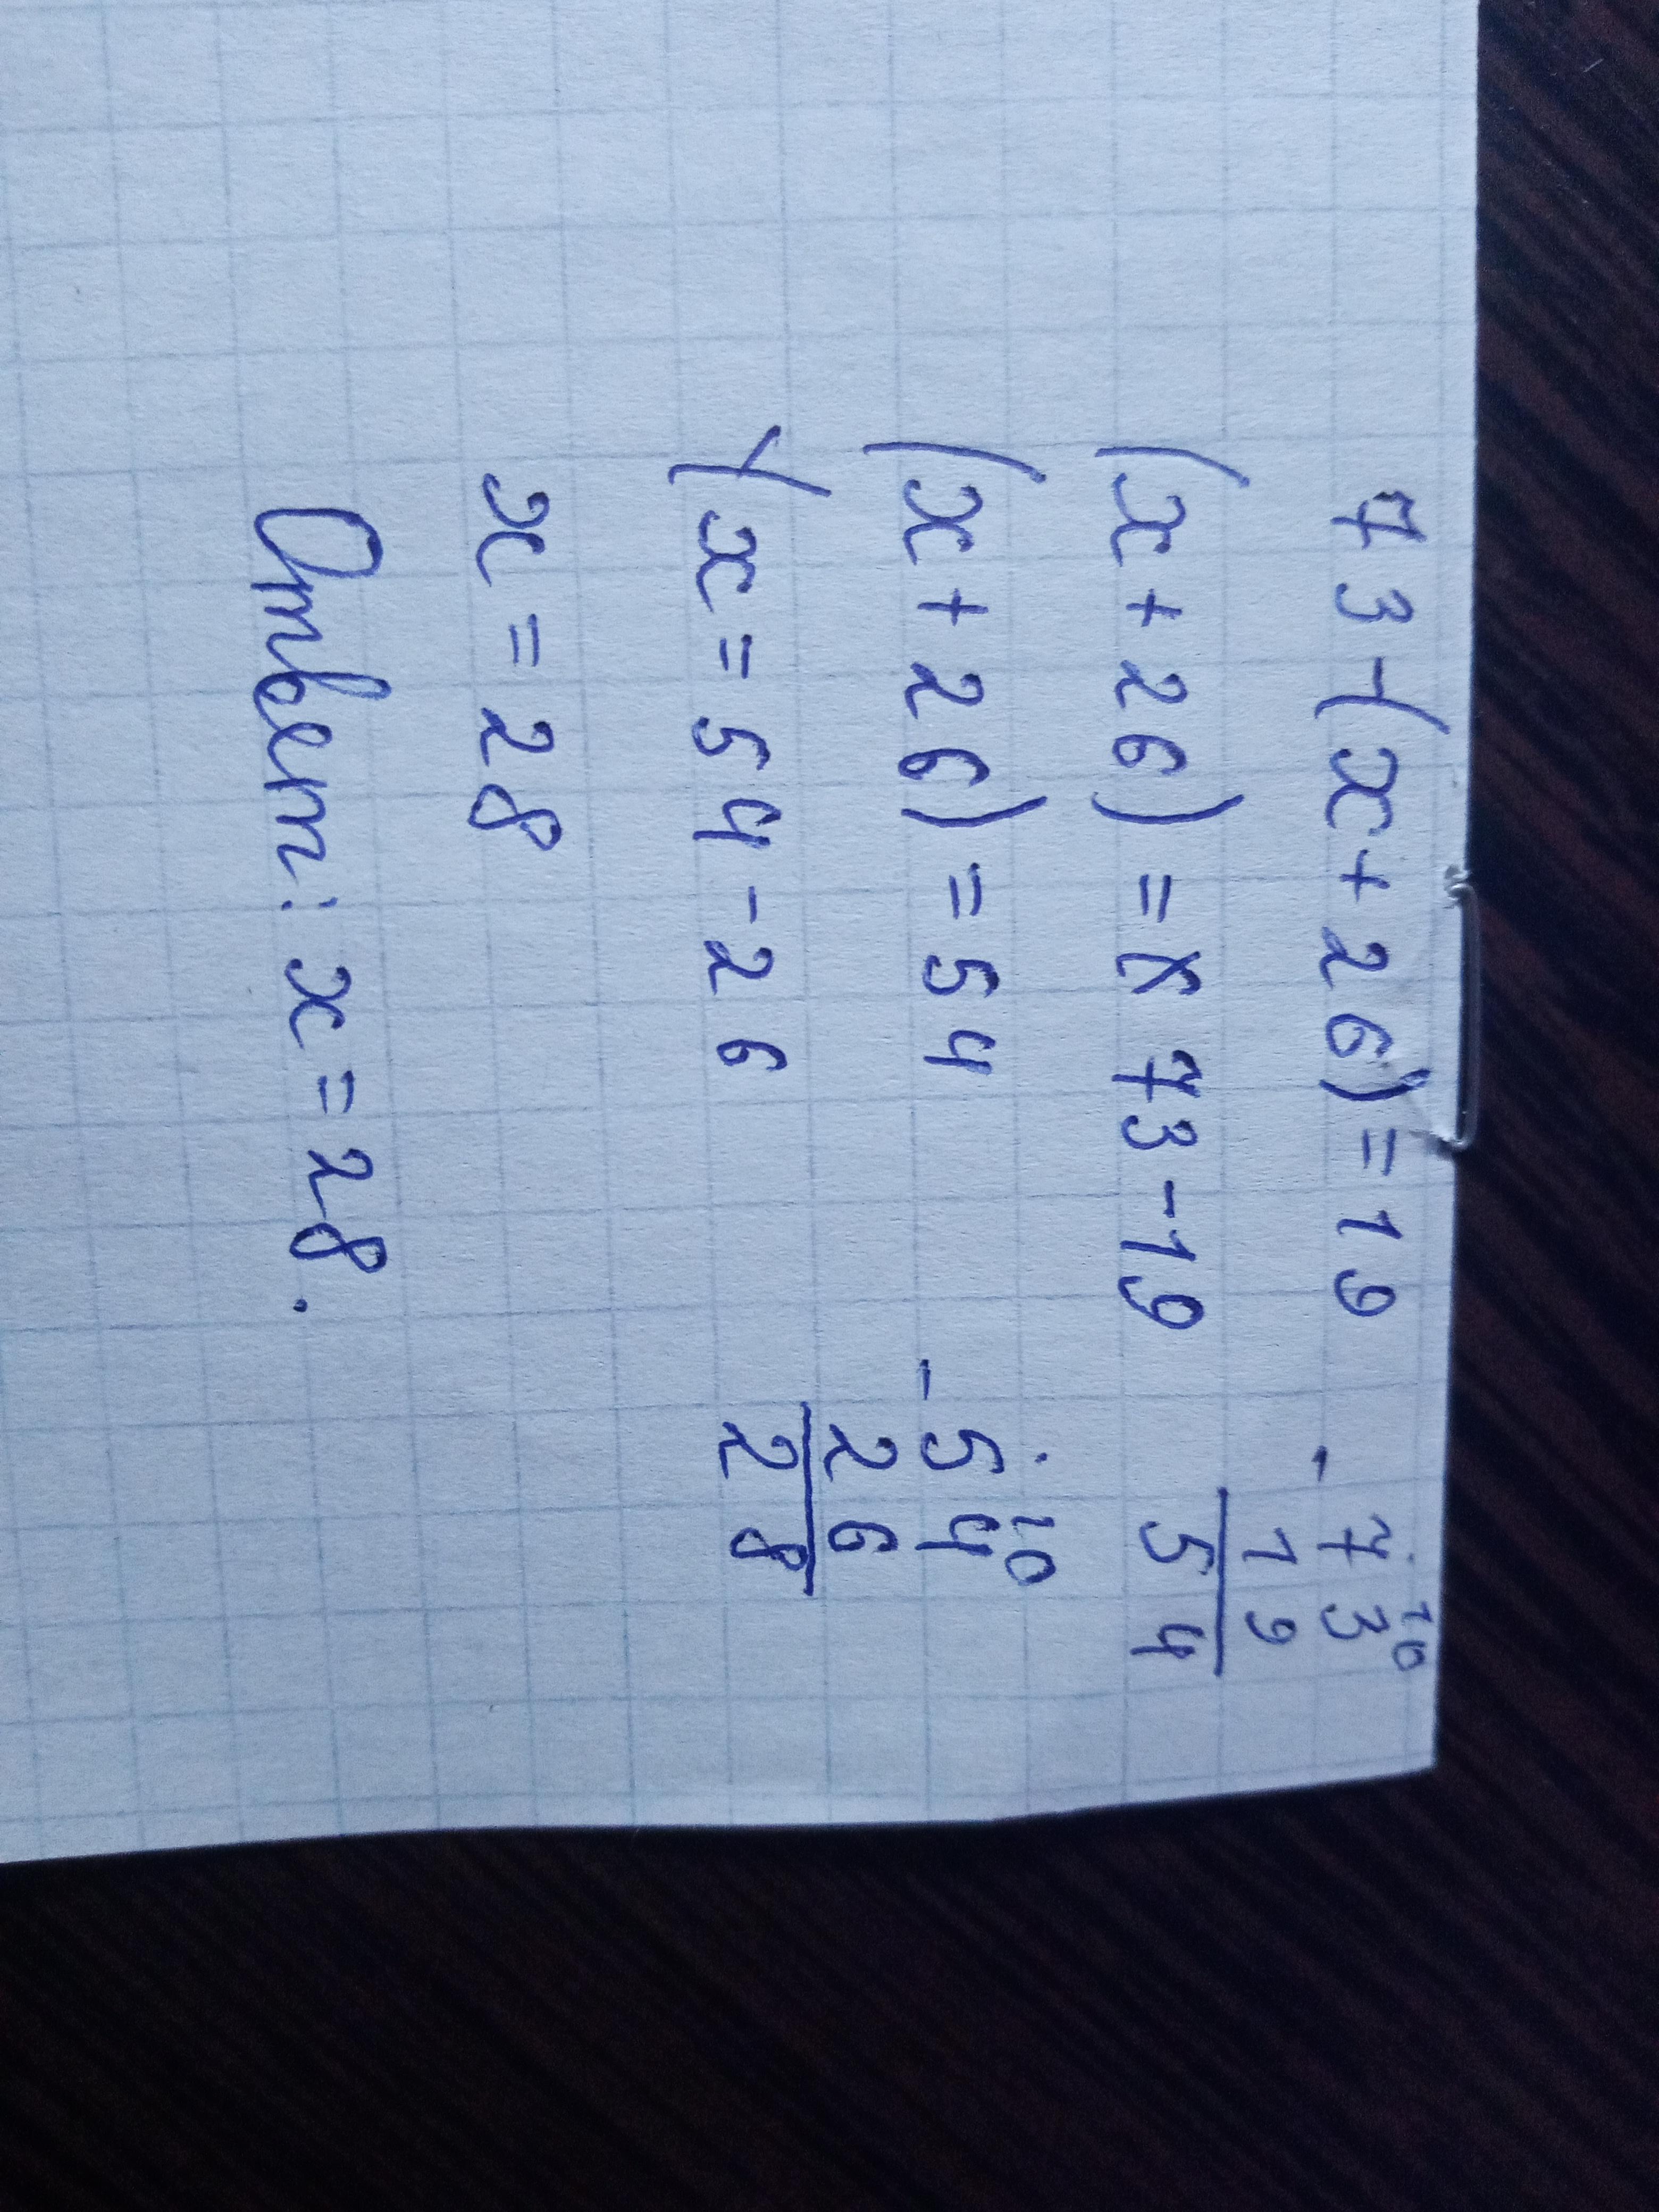 73-(x+26)=19
(x+26)=73-19
(x+26)=54
x=54-26
x=28
Ответ: x=28.
10
- 73
19
54
10
- 54
26
28